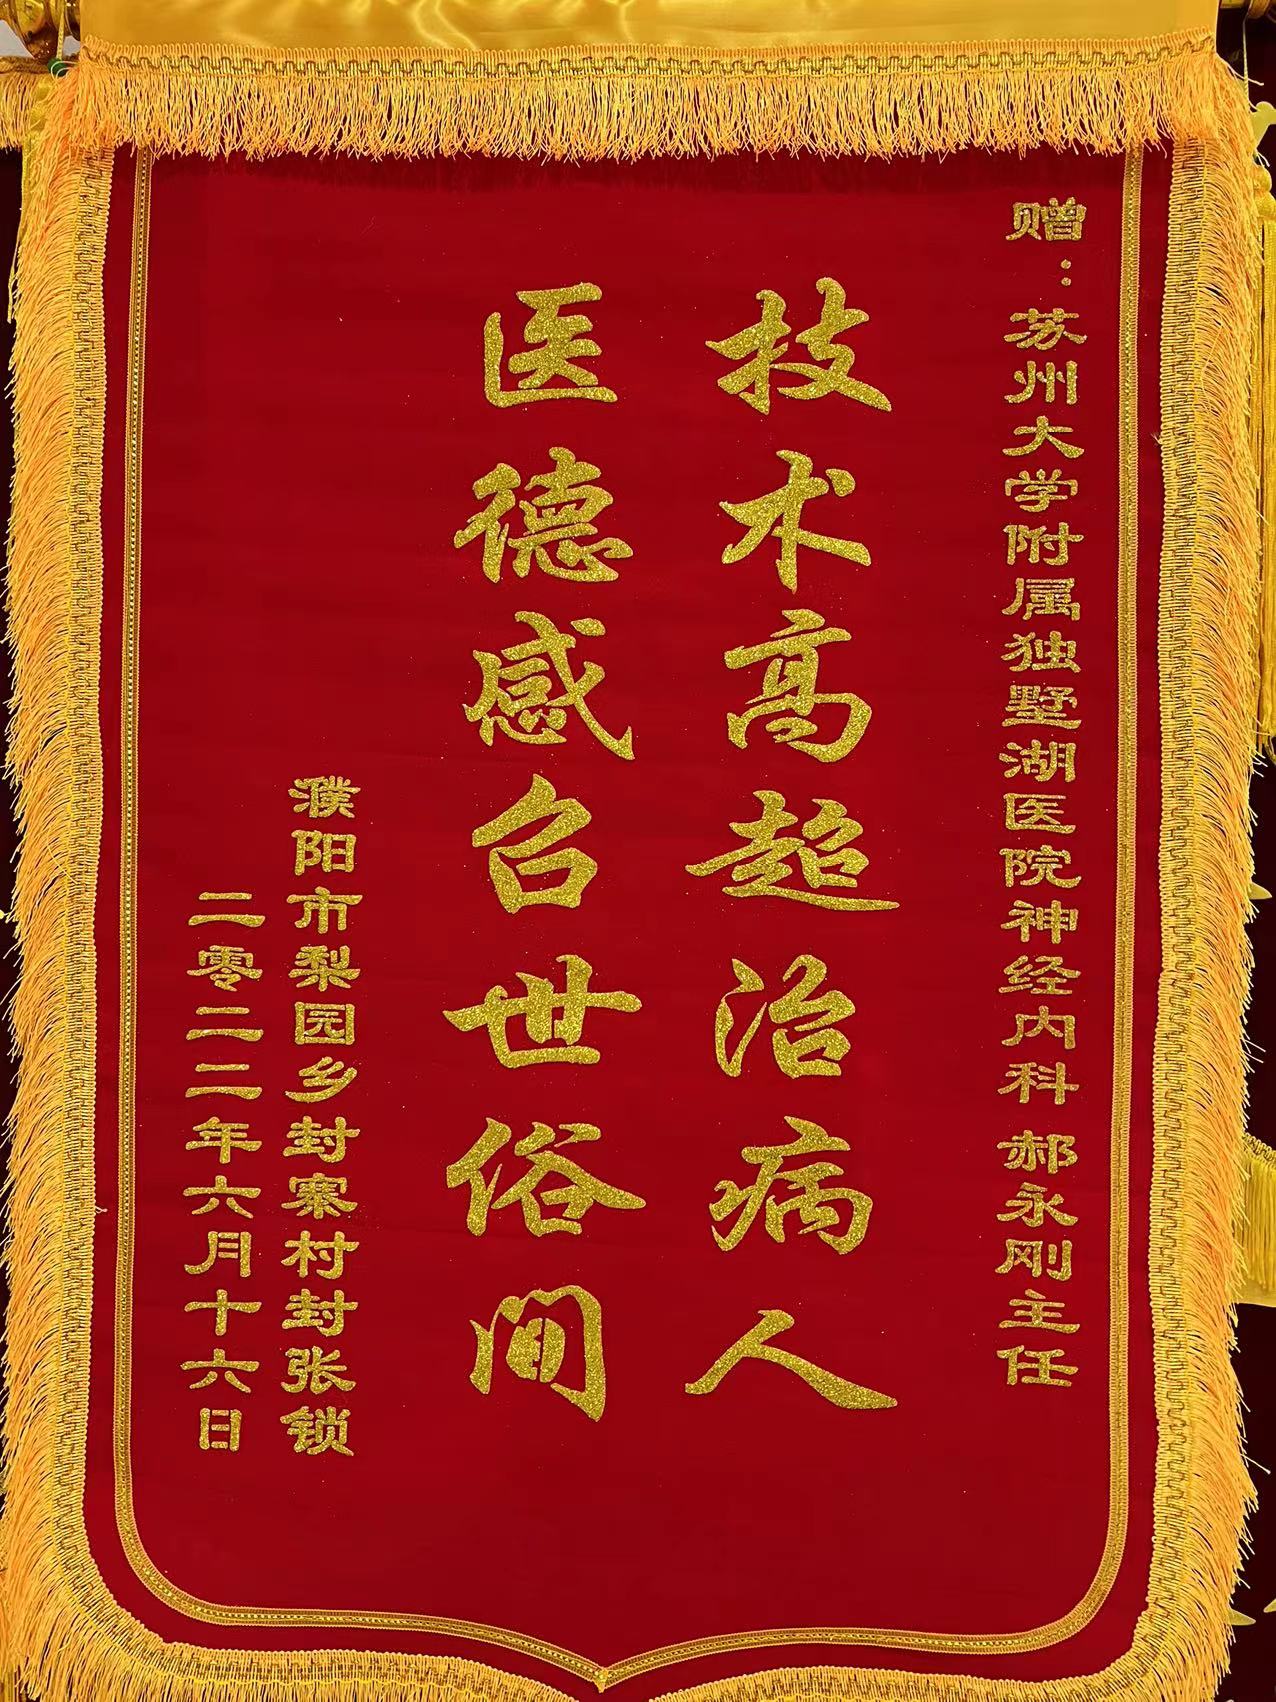 赠：苏州大学附属独墅湖医院神经内科 郝永刚主任
技术高超治病人
医德感召世俗间
濮阳市梨园乡封寨村封张锁
二零二二年六月十六日